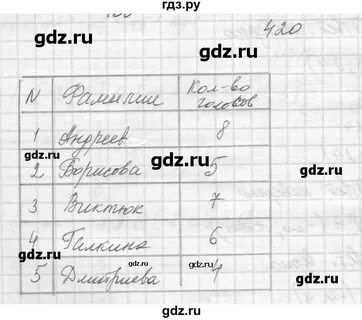 гдз.ру
420
gdz.ru gdz.ru
N Фамилии Кол-во голосов
gdz.ru
1 Андреев 8
gdz.ru gdz.ru
2 Борисова 5
3 Виктюк 7
gdz.ru gdz.ru
4 Галкина 6
gdz.ru gdz.ru gdz.ru
5 Дмитриева 4
gdz.ru